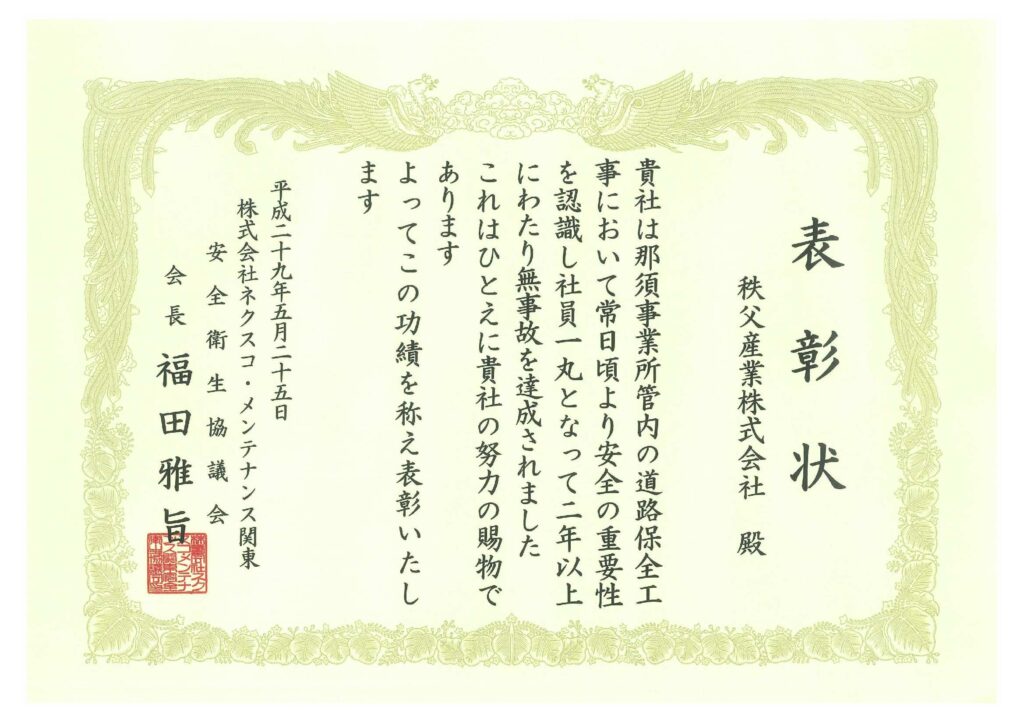 表彰状
秩父産業株式会社 殿
貴社は那須事業所管内の道路保全工
事において常日頃より安全の重要性
を認識し社員一丸となって二年以上
にわたり無事故を達成されました
これはひとえに貴社の努力の賜物で
あります
よってこの功績を称え表彰いたし
ます
平成二十九年五月二十五日
株式会社ネクスコ・メンテナンス関東
安全衛生協議会
会長 福田雅旨